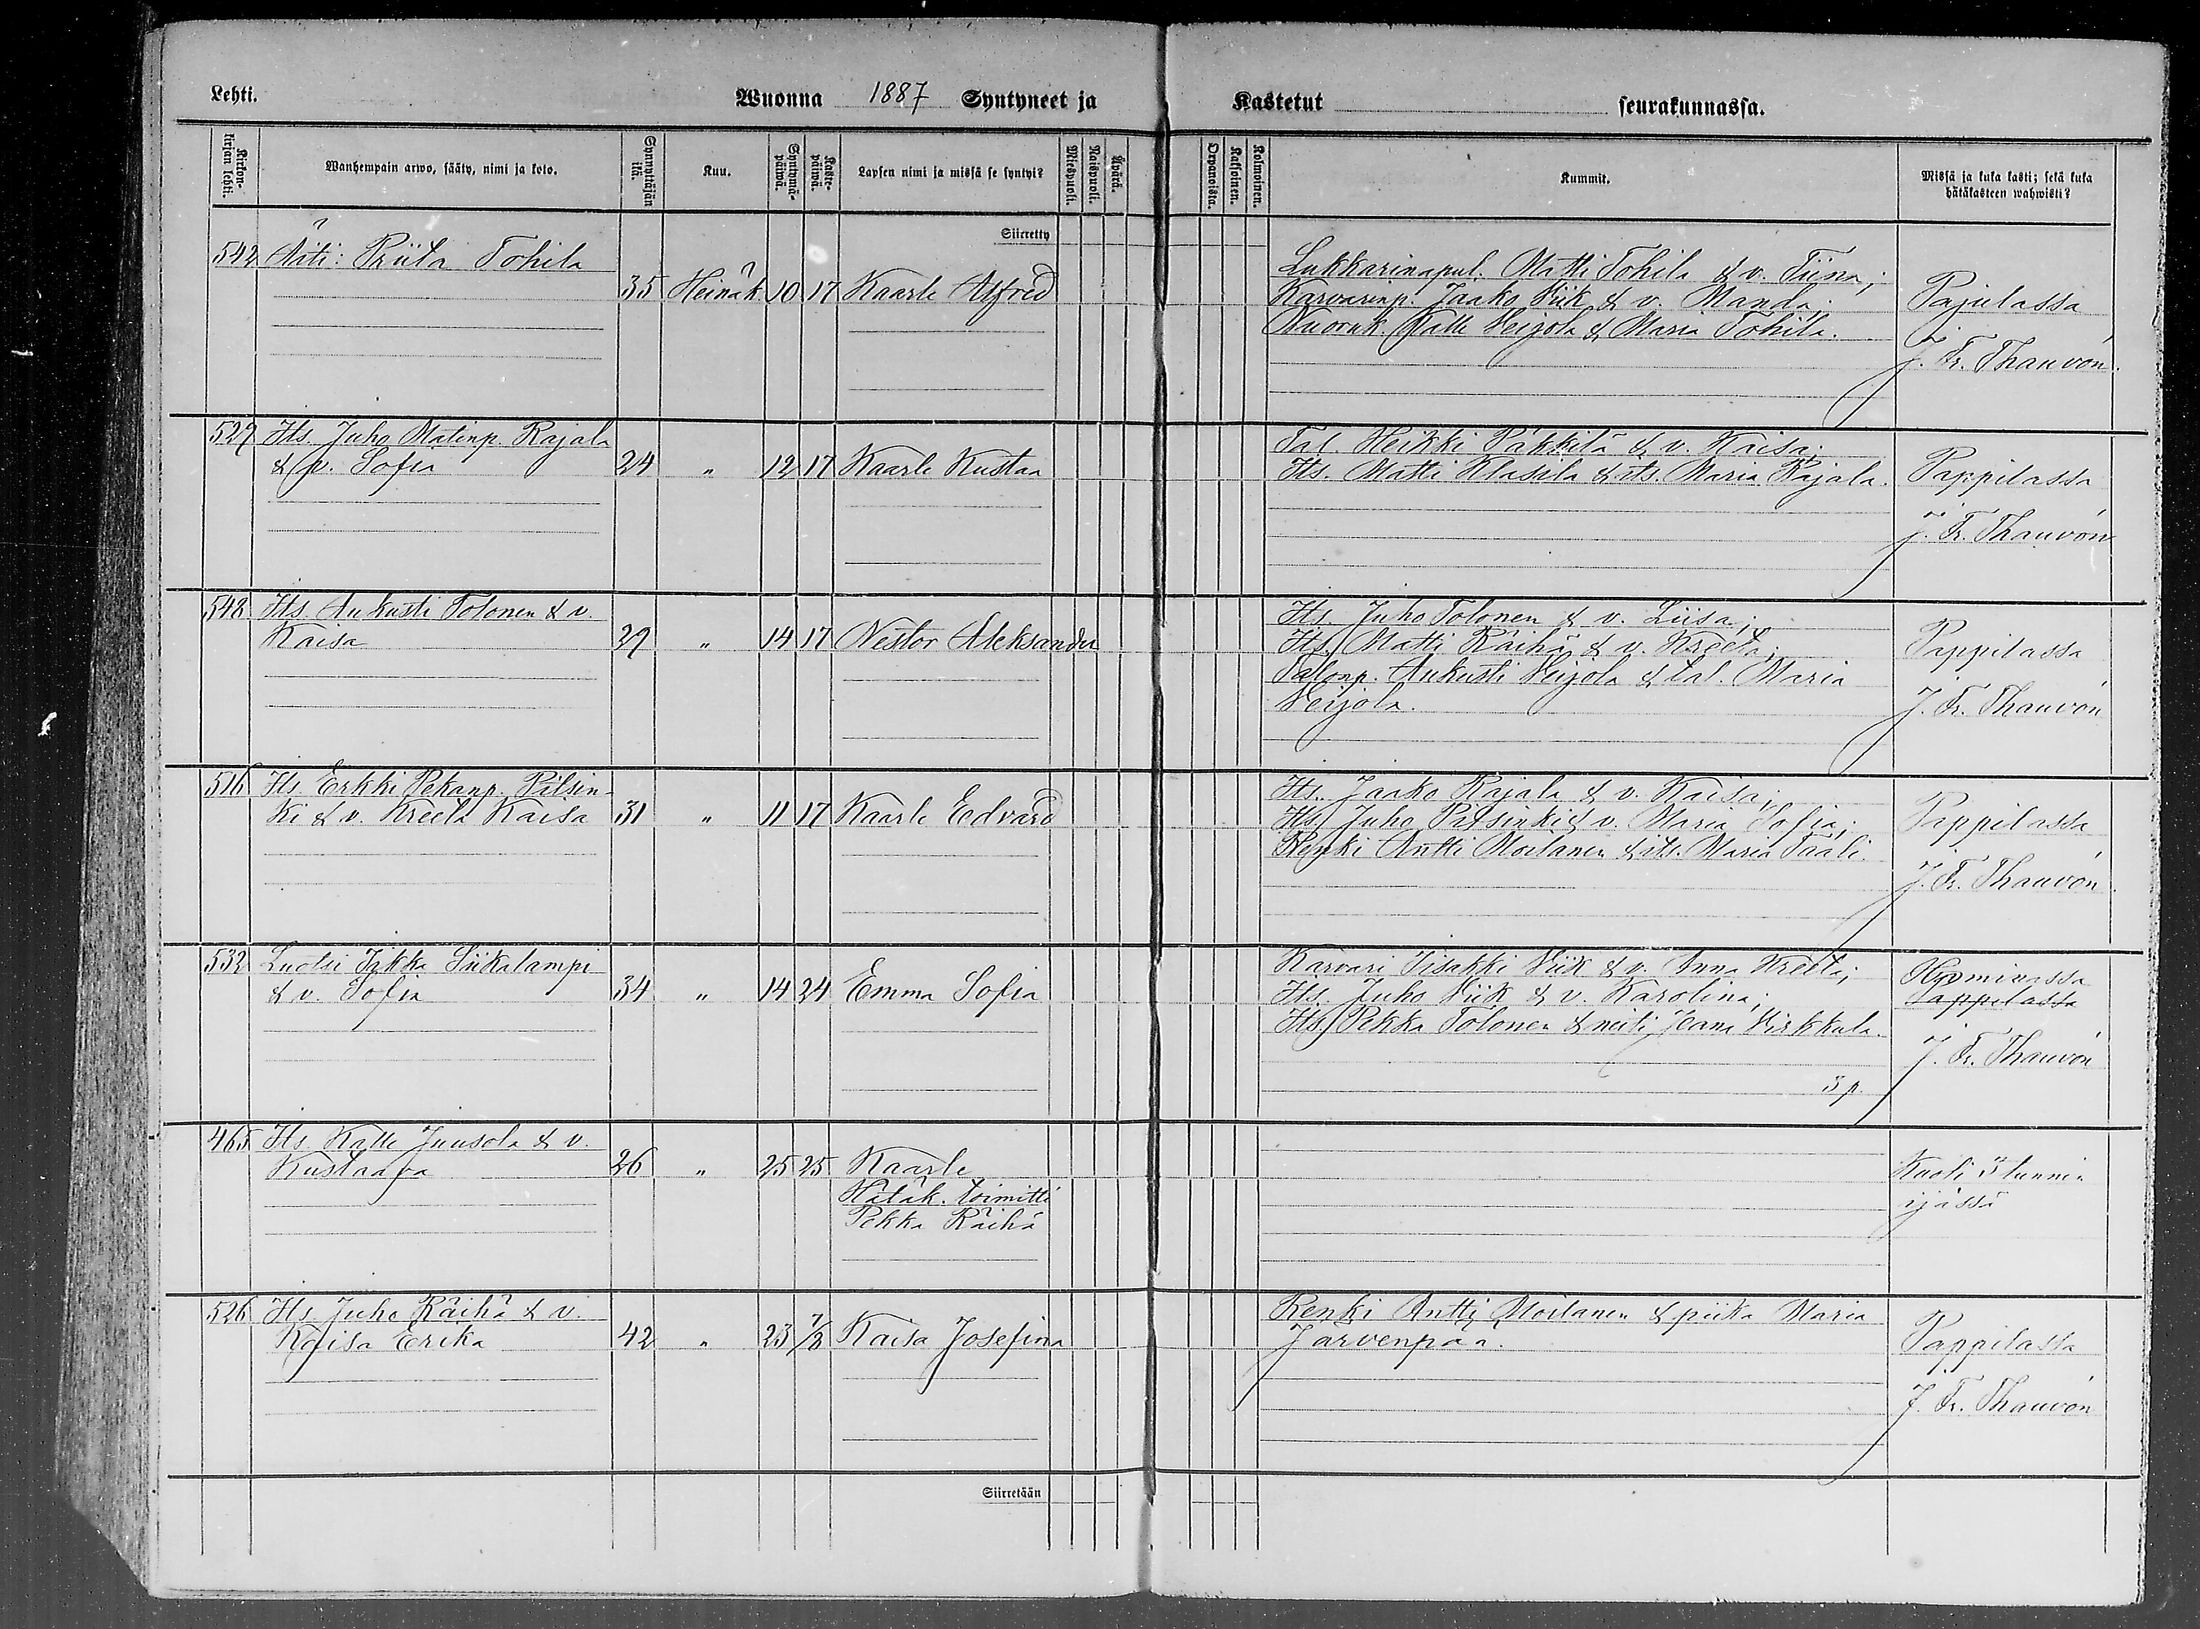 Lehti.
Wuonna 1887 Syntyneet ja Kastetut seurakunnassa.
Kirkon-kirjan lehti.
Wanhempain arwo, sääty, nimi ja koto.
Synnyttäjän ikä
Kuu.
Syntymä-päiwä.
Kaste-päiwä.
Lapsen nimi ja missä se syntyi?
Miespuoli.
Naispuoli.
Äpärä.
Orpanoista.
Kaksoinen.
Kolmoinen.
Kummit.
Missä ja kuka kasti; sekä kuka hätäkasteen wahwisti?
Siirretty
542 Äiti: Priita Tohila
35 Heinäk. 10 17 Kaarle Alfred
Lukkarinapul. Matti Tohila & v. Tiina;
Karvarinp. Jaako Viik & v. Manda;
Nuoruk. Kalle Veijola & Maria Tohila.
Pajulassa
J. Fr. Thauvón.
527 Its. Juho Matinp. Rajala
& v. Sofia 24 " 12 17 Kaarle Kustaa
Tal. Heikki Päkkilä & v. Kaisa;
Its. Matti Klasila & its. Maria Rajala.
Pappilassa
J. Fr. Thauvón
548 Its. Aukusti Tolonen & v.
Kaisa 29 " 14 17 Nestor Aleksander
Its. Juho Tolonen & v. Liisa;
Its. Matti Räihä & v. Kreeta;
Talonp. Aukusti Veijola & tal. Maria
Veijola.
Pappilassa
J. Fr. Thauvón
516 Its. Erkki Pekanp. Pilsin-
ki & v. Kreeta Kaisa 31 " 11 17 Kaarle Edvard
Its. Jaako Rajala & v. Kaisa;
Its. Juho Pilsinki & v. Maria Sofia;
Renki Antti Moilanen & its. Maria Taali.
Pappilassa
J. Fr. Thauvón.
532 Luotsi Iikka Siikalampi
& v. Sofia 34 " 14 24 Emma Sofia
Karvari Iisakki Viik & v. Anna Kreeta;
Its. Juho Viik & v. Karolina;
Its. Pekka Tolonen & neiti Jeana Virkkula.
3 p.
Pappilassa
J. Fr. Thauvón
465 Its. Kalle Juusola & v.
Kustaava 26 " 25 25 Kaarle
Hätäk. toimitti
Pekka Räihä
Kuoli 3 tunnin
ijässä
526 Its. Juho Räihä & v.
Kaisa Erika 42 " 23 7/8 Kaisa Josefina
Renki Antti Moilanen & piika Maria
Järvenpää.
Pappilassa
J. Fr. Thauvón
Siirretään